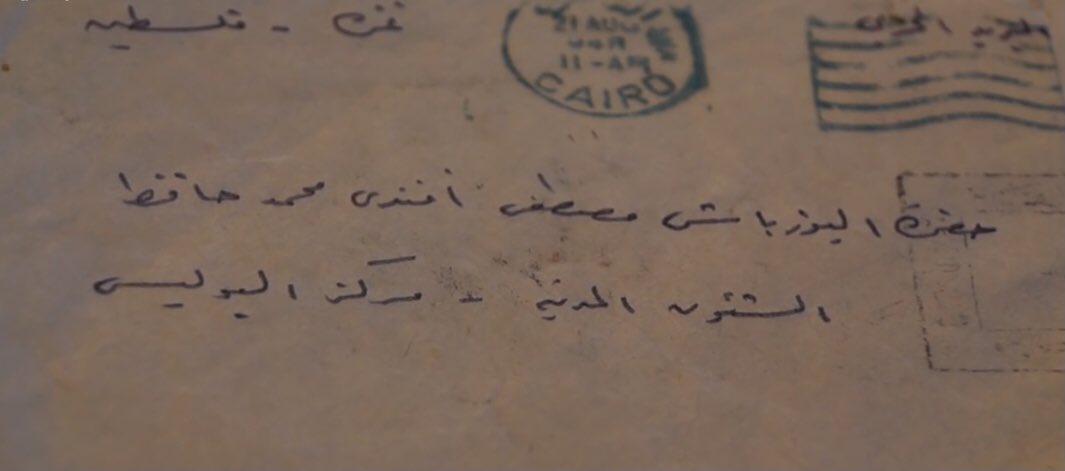 غزه - فلسطين
21 AUG
11-AM
CAIRO
حضرة اليوزباشى مصطفى أفندى محمد حافظ
الشئون المدنية - مركز البوليس